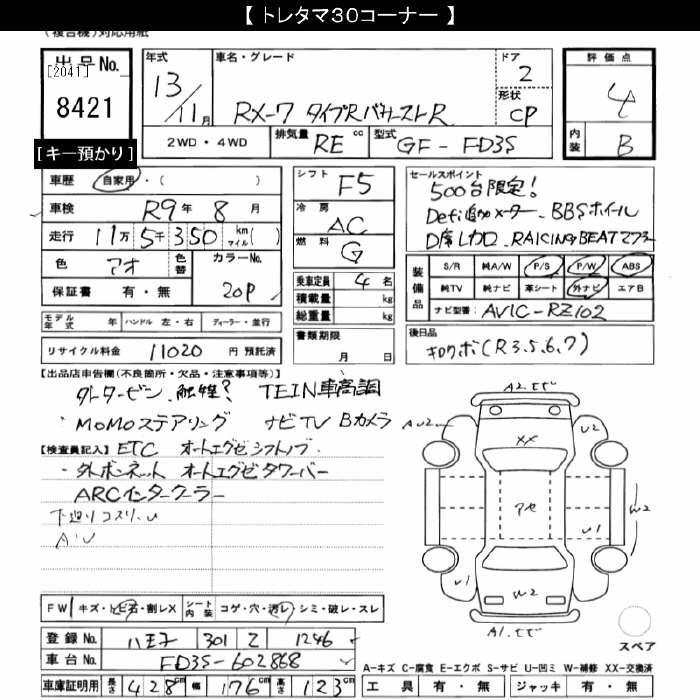 【 トレタマ30コーナー 】
(複合機)対応用紙
出品No.
[2041]
8421
[キー預かり]
年式
13/11月
車名・グレード
RX-7 タイプRバサーストR
ドア
2
形状
CP
評価点
4
内装
B
2WD・4WD
排気量
RE cc
型式
GF-FD3S
車歴 自家用・( )
車検 R9年 8月
走行 11万 5千350 km マイル( )
色 アオ 色替 カラーNo. 20P
保証書 有・無
シフト F5
冷房 AC
燃料 G
乗車定員 4名
積載量 kg
総重量 kg
書類期限
月 日
セールスポイント
500台限定!
Defi追加メーター、BBSホイール
D席レカロ、RAICINGBEATマフラー
装備品
S/R 純A/W P/S P/W ABS
純TV 純ナビ 革シート 外ナビ エアB
ナビ型番 AVIC-RZ102
後日品
キロクボ(R3,5,6,7)
モデル年式 年 ハンドル 左・右 ディーラー・並行
リサイクル料金 11020 円 預託済
【出品店申告欄(不良箇所・欠品・注意事項等)】
外トタービン、触媒? TEIN車高調
・MOMOステアリング ナビTV Bカメラ
【検査員記入】 ETC オートエグゼシフトノブ
・外ボンネット オートエグゼタワーバー
ARCインタークーラー
下廻りコスリ、U
A、U
A2
AU2
XX
U2
アセ
W2
U1
U1
W2
A1
スペア
FW キズ・トビ石・割レX シート内装 コゲ・穴・汚レ・シミ・破レ・スレ
登録No. 八王子 301 Z 1246
車台No. FD3S-602868
車庫証明用 長さ 428cm 幅 176cm 高さ 123cm
A-キズ C-腐食 E-エクボ S-サビ U-凹ミ W-補修 XX-交換済
工具 有・無 ジャッキ 有・無